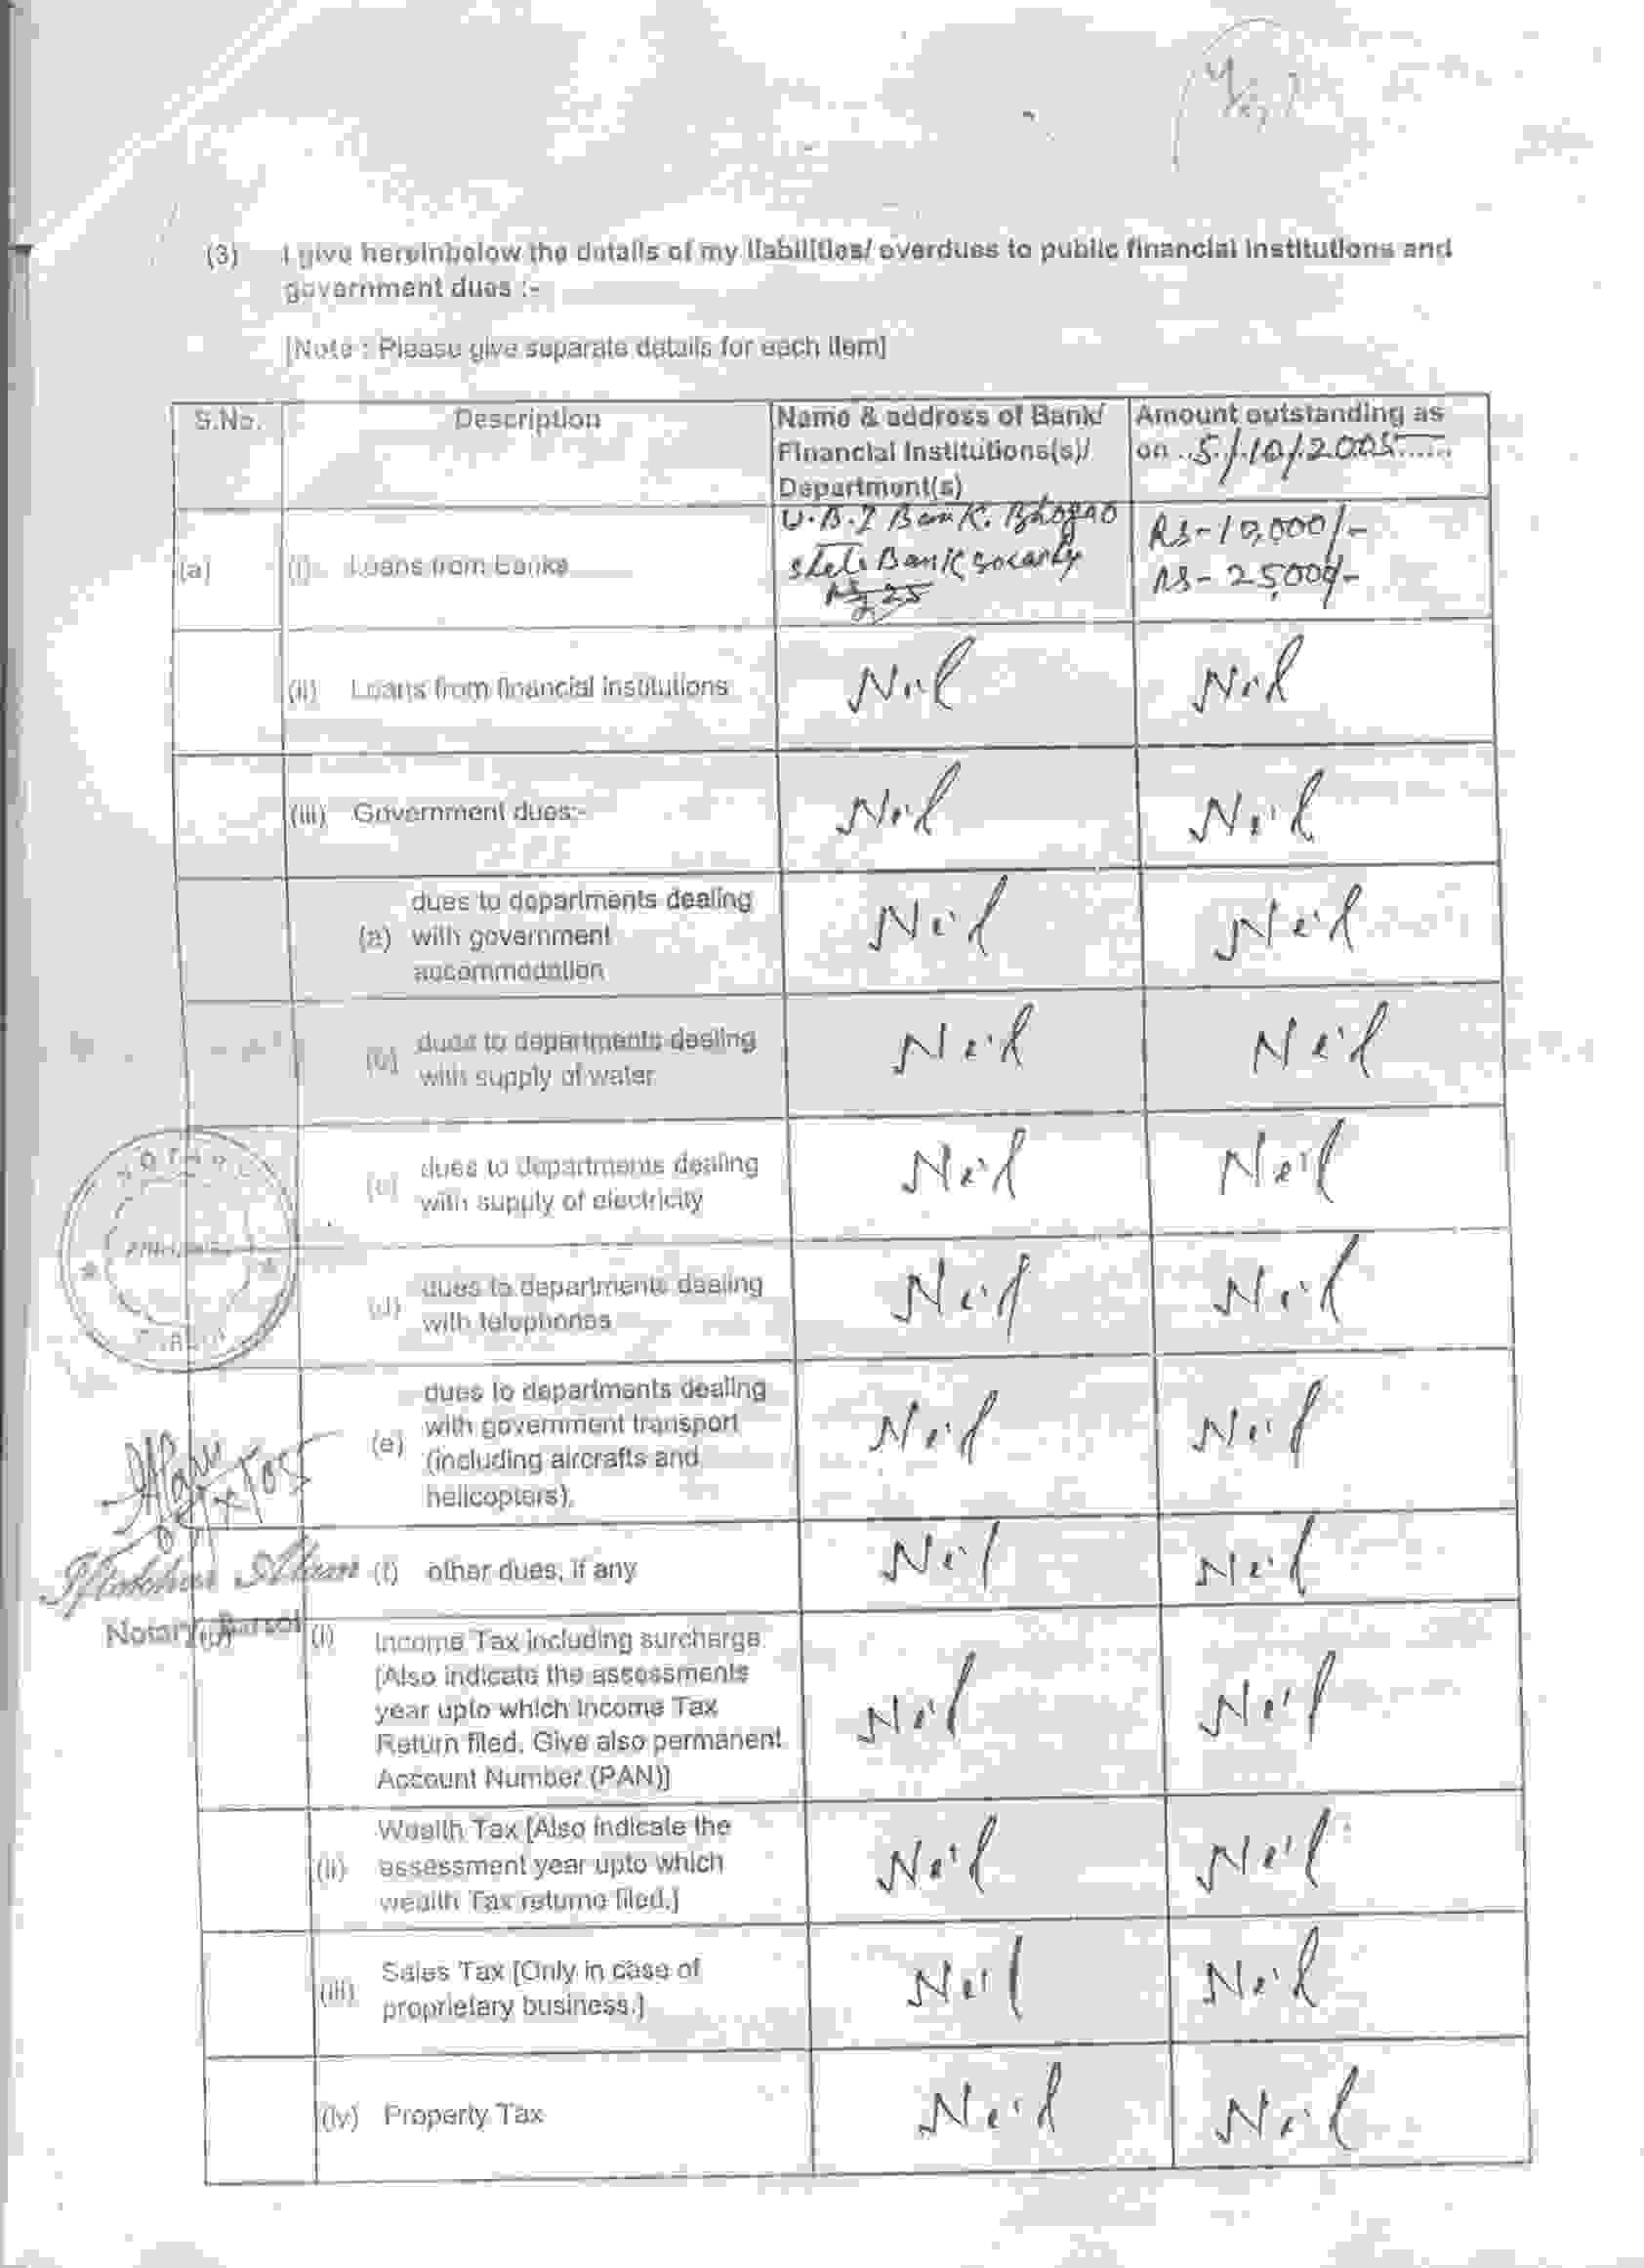 (3) I give hereinbelow the details of my liabilities/ overdues to public financial institutions and
government dues :-
[Note : Please give separate details for each item]
S.No. Description Name & address of Bank/ Amount outstanding as
Financial Institutions(s)/ on ..5/.10/.2005......
Department(s)
(a) (i) Loans from banks U.B.I Bank. Bhogao Rs-10,000/-
State Bank Rs-25,000/-
(ii) Loans from financial institutions Neil Neil
(iii) Government dues:- Neil Neil
dues to departments dealing
(a) with government Neil Neil
accommodation
(b) dues to departments dealing Neil Neil
with supply of water
(c) dues to departments dealing Neil Neil
with supply of electricity
(d) dues to departments dealing Neil Neil
with telephones
dues to departments dealing
with government transport
(e) (including aircrafts and Neil Neil
helicopters).
(f) other dues, if any Neil Neil
Notary
(b) (i) Income Tax including surcharge
[Also indicate the assessments
year upto which Income Tax Neil Neil
Return filed. Give also permanent
Account Number (PAN)]
Wealth Tax [Also indicate the
(ii) assessment year upto which Neil Neil
wealth Tax returne filed.]
(iii) Sales Tax [Only in case of Neil Neil
proprietary business.]
(iv) Property Tax Neil Neil